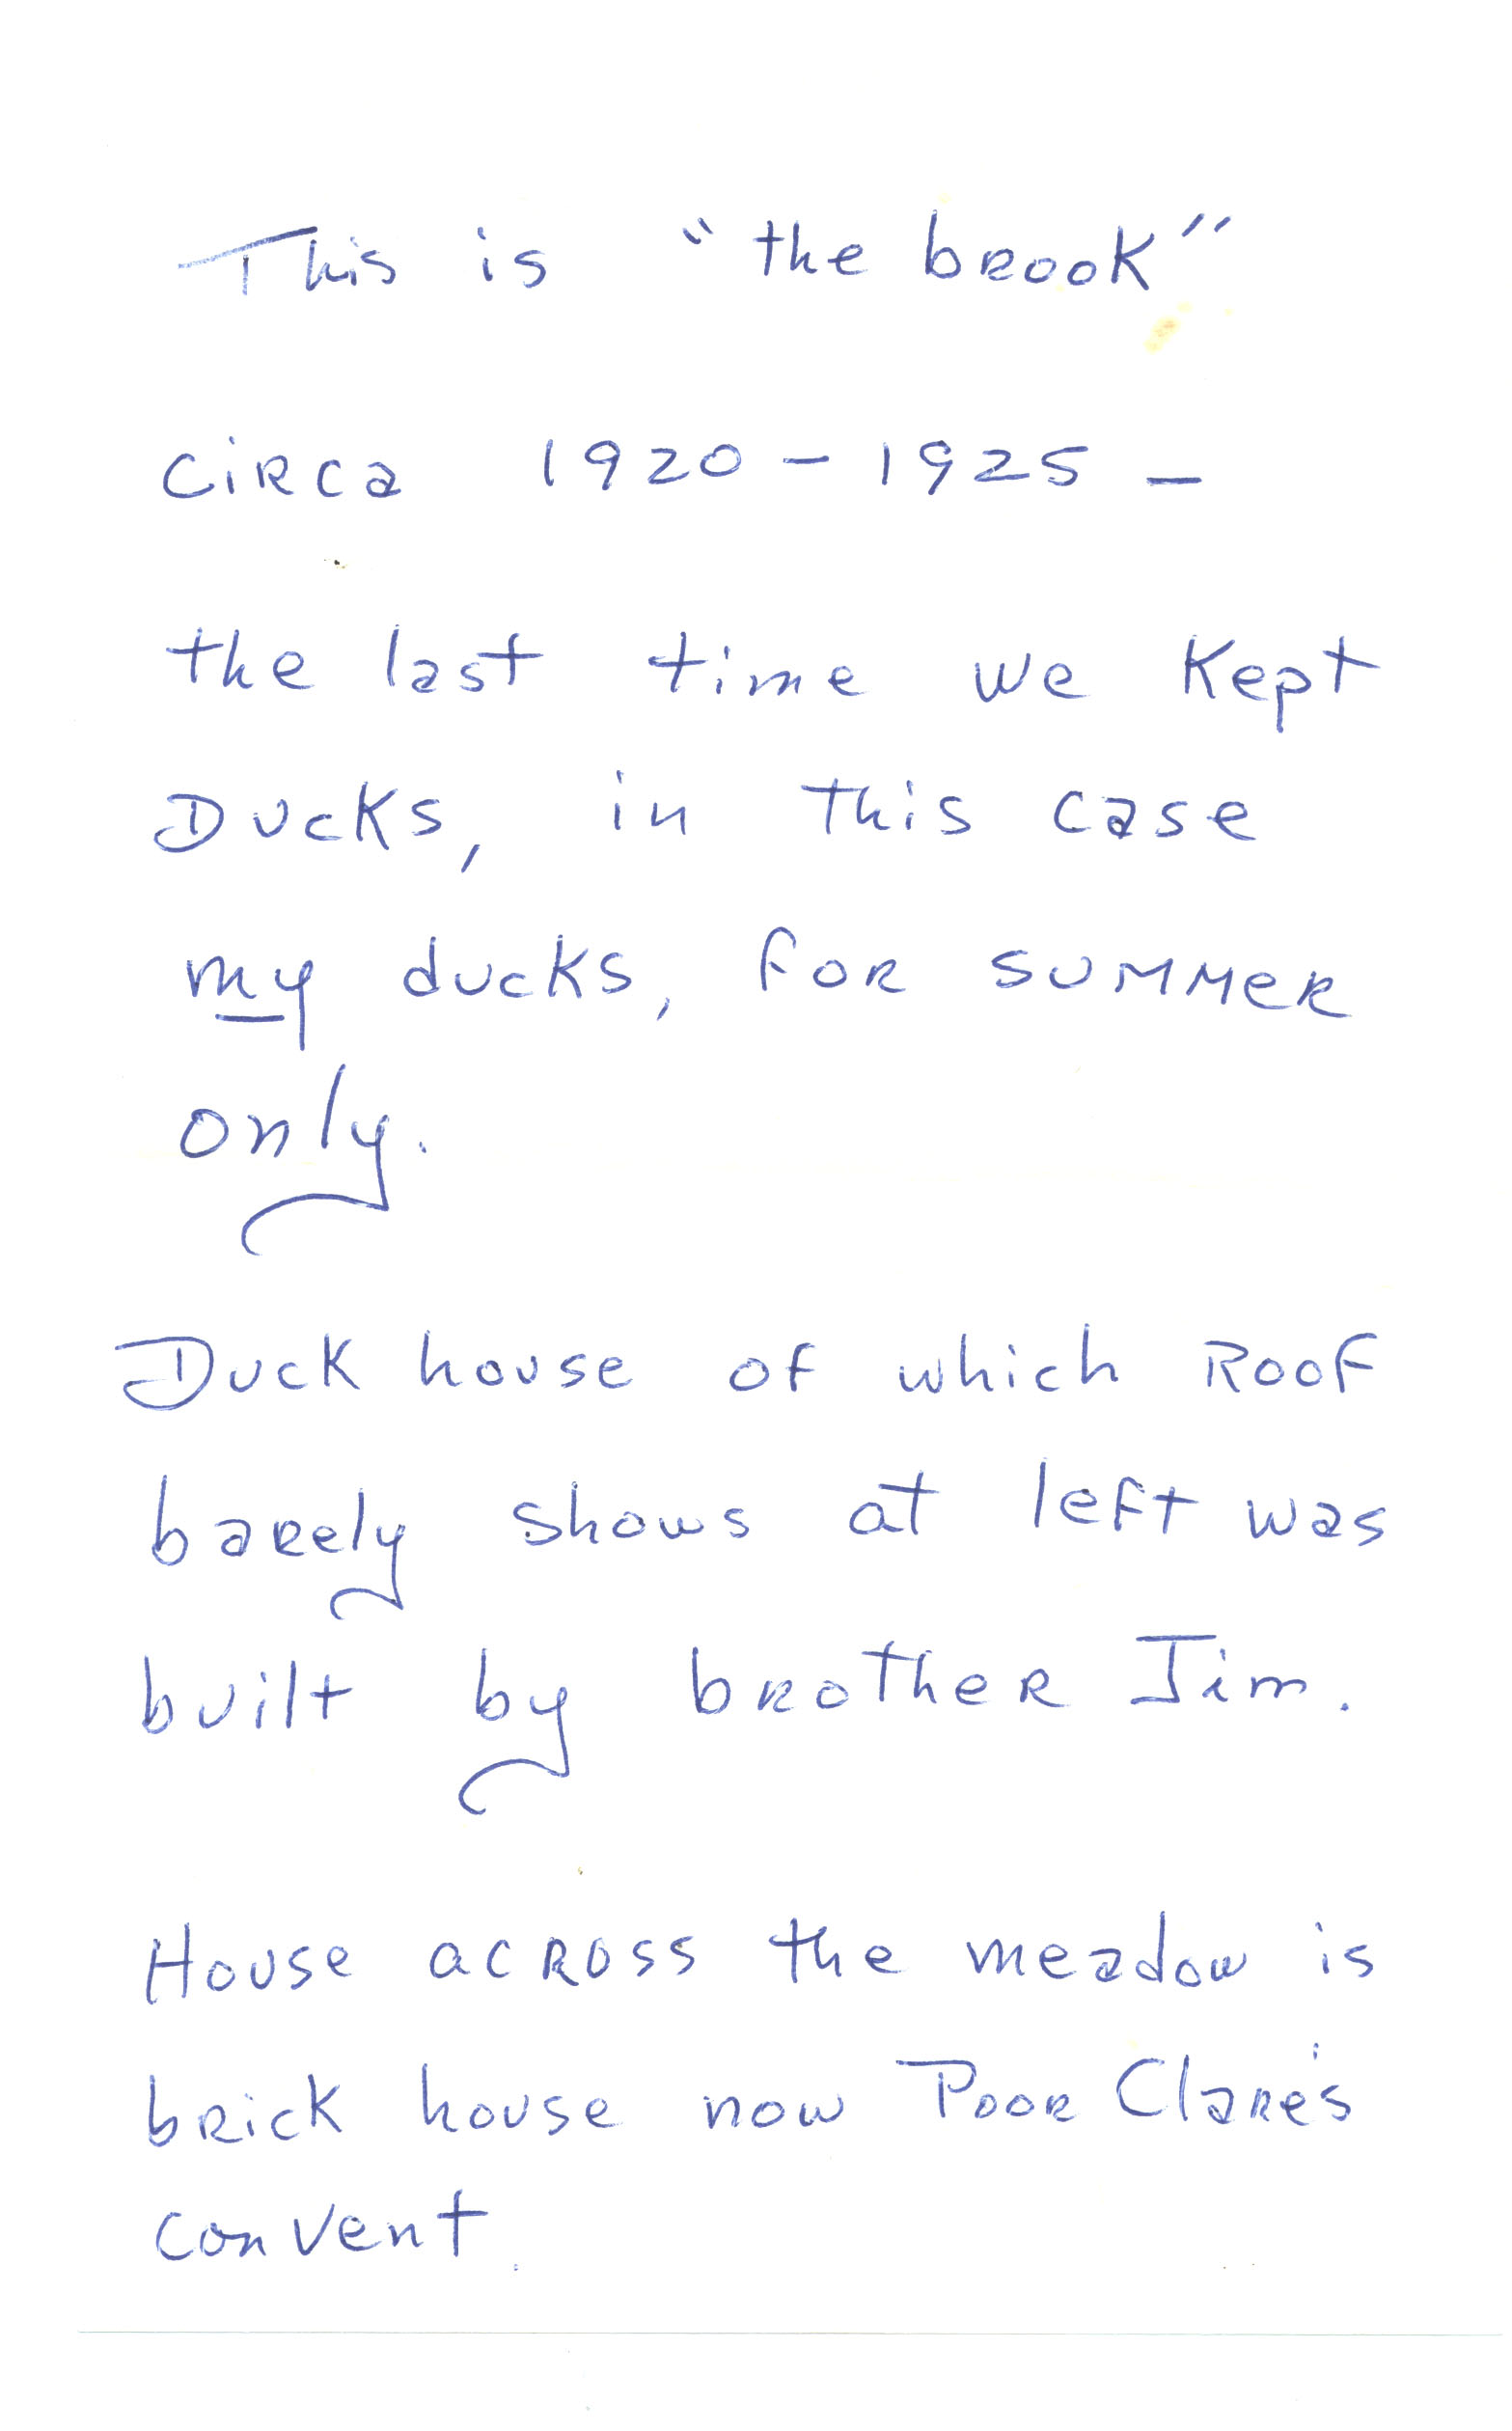 This is "the brook"
circa 1920 - 1925 -
the last time we kept
Ducks, in this case
my ducks, for summer
only.
Duck house of which Roof
barely shows at left was
built by brother Jim.
House across the meadow is
brick house now Poor Clare's
convent.